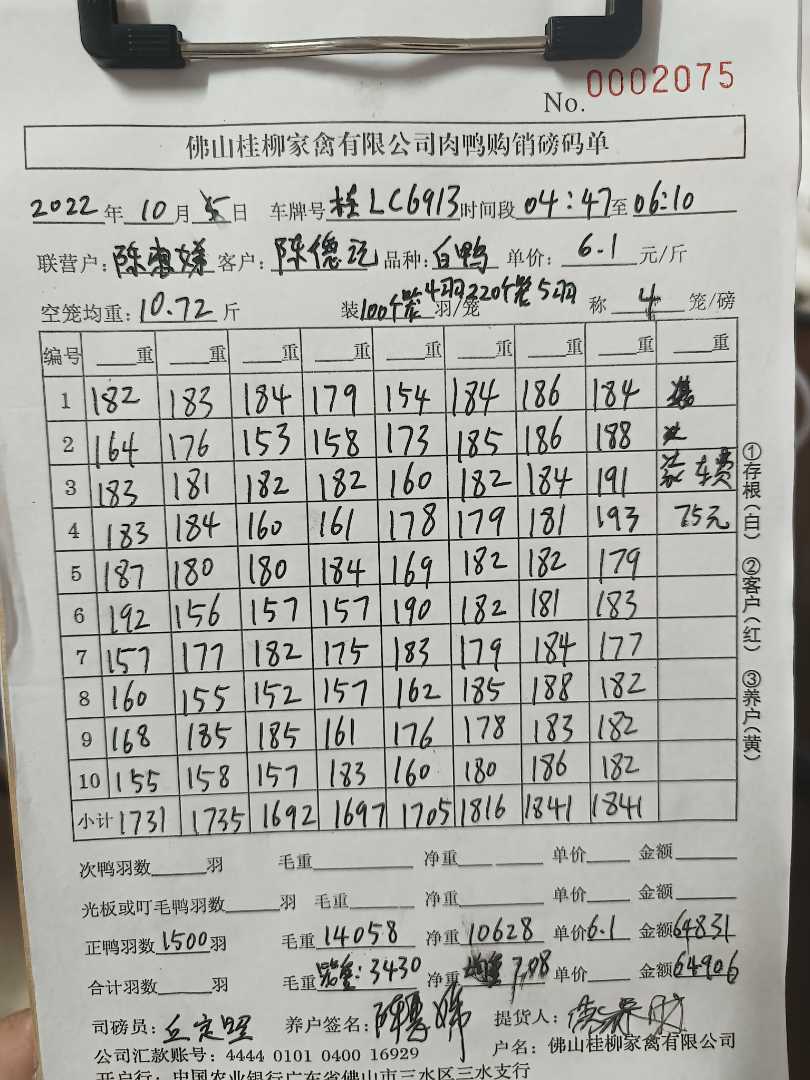 No. 0002075
佛山桂柳家禽有限公司肉鸭购销磅码单
2022年 10月 5日 车牌号 桂LC6913 时间段 04:47 至 06:10
联营户: 陈惠嫦 客户: 陈德记 品种: 白鸭 单价: 6.1 元/斤
空笼均重: 10.72 斤 装 100个笼4羽220个笼5羽 羽/笼 称 4 笼/磅
编号 重 重 重 重 重 重 重 重 重
1 182 183 184 179 154 184 186 184
2 164 176 153 158 173 185 186 188
3 183 181 182 182 160 182 184 191 装车费
4 183 184 160 161 178 179 181 193 75元
5 187 180 180 184 169 182 182 179
6 192 156 157 157 190 182 181 183
7 157 177 182 175 183 179 184 177
8 160 155 152 157 162 185 188 182
9 168 185 185 161 176 178 183 182
10 155 158 157 183 160 180 186 182
小计 1731 1735 1692 1697 1705 1816 1841 1841
①存根(白) ②客户(红) ③养户(黄)
次鸭羽数 羽 毛重 净重 单价 金额
光板或叮毛鸭羽数 羽 毛重 净重 单价 金额
正鸭羽数 1500 羽 毛重 14058 净重 10628 单价 6.1 金额 64831
合计羽数 羽 毛重 笼重:3430 净重 均重 7.08 单价 金额 64906
司磅员: 养户签名: 提货人:
公司汇款账号: 4444 0101 0400 16929 户名: 佛山桂柳家禽有限公司
开户行: 中国农业银行广东省佛山市三水区三水支行